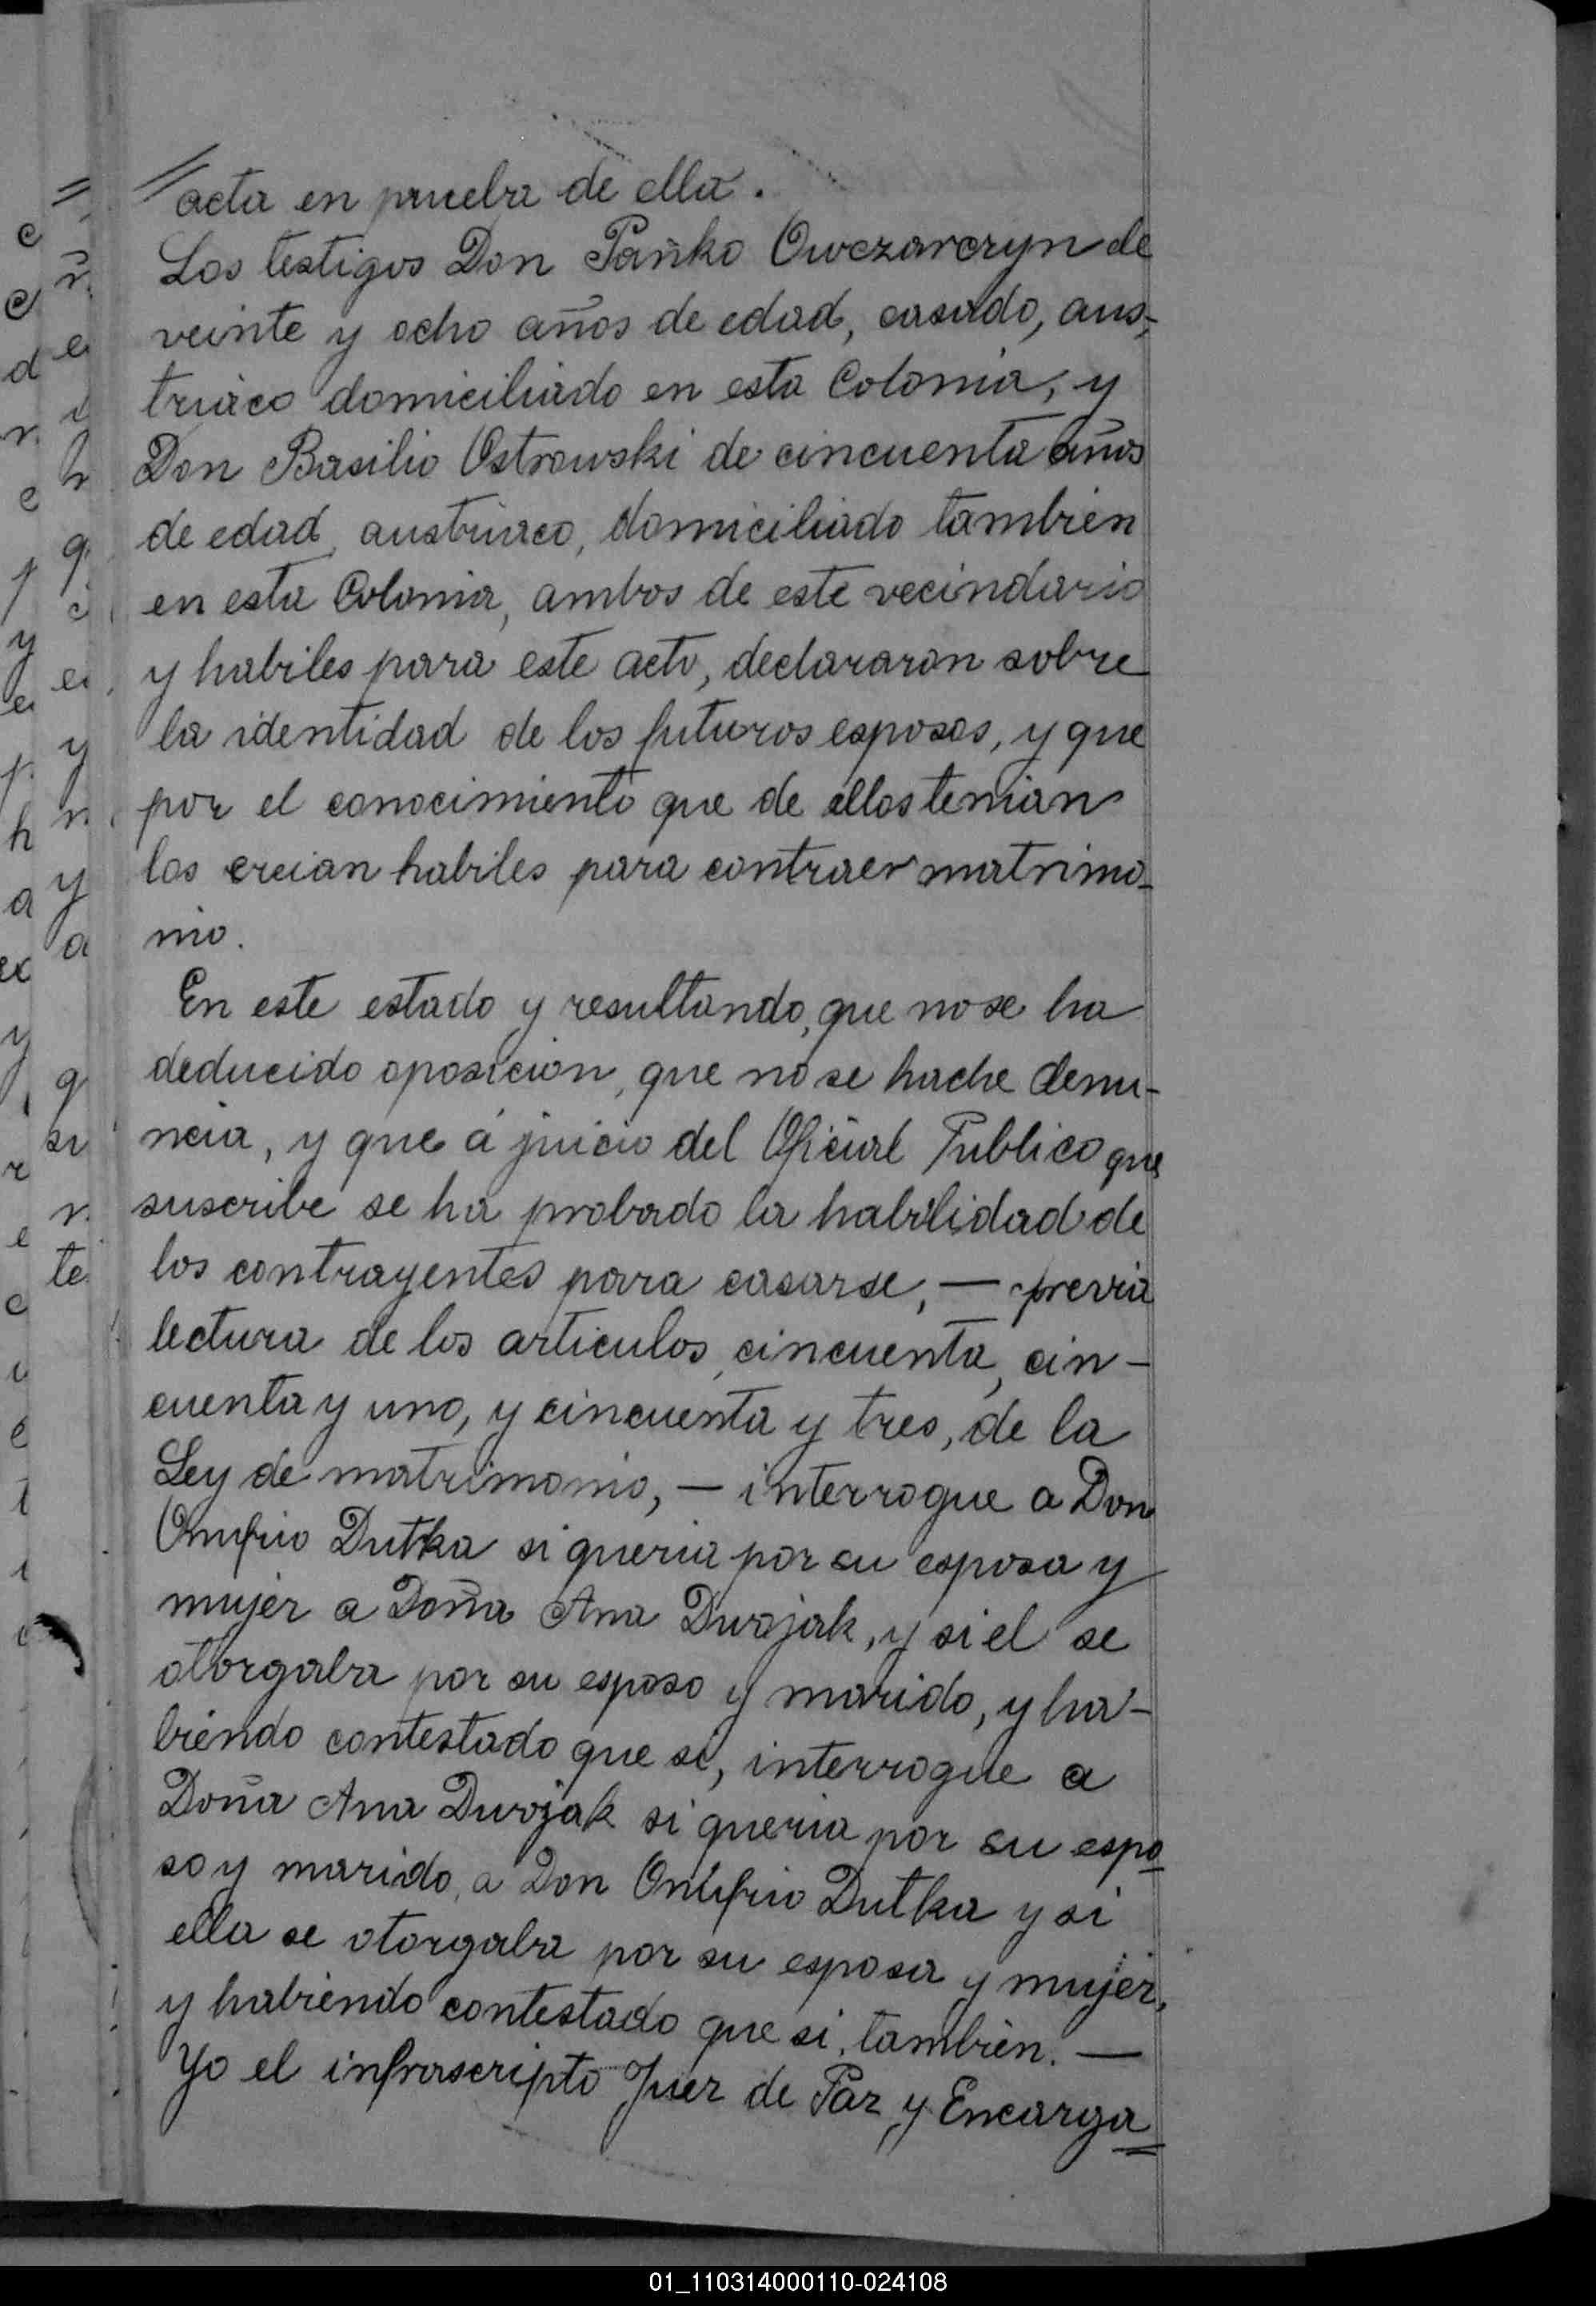 // acta en prueba de ella.
Los testigos Don Pañko Owczarczyn de
veinte y ocho años de edad, casado, aus-
triaco domiciliado en esta Colonia, y
Don Basilio Ostrowski de cincuenta años
de edad, austriaco, domiciliado tambien
en esta Colonia, ambos de este vecindario
y habiles para este acto, declararon sobre
la identidad de los futuros esposos, y que
por el conocimiento que de ellos tenian
los creian habiles para contraer matrimo-
nio.
En este estado y resultando, que no se ha
deducido oposicion, que no se hache denu-
ncia, y que á juicio del Oficial Publico que
suscribe se ha probado la habilidad de
los contrayentes para casarse, — previa
lectura de los articulos, cincuenta, cin-
cuenta y uno, y cincuenta y tres, de la
Ley de matrimonio, — interrogue a Don
Onufrio Dutka si queria por su esposa y
mujer a Doña Ana Dwojak, y si el se
otorgaba por su esposo y marido, y ha-
biendo contestado que si, interrogue a
Doña Ana Dwojak si queria por su espo-
so y marido, a Don Onufrio Dutka y si
ella se otorgaba por su esposa y mujer,
y habiendo contestado que si, tambien. —
Yo el infrascripto Juez de Paz y Encarga=
01_110314000110-024108